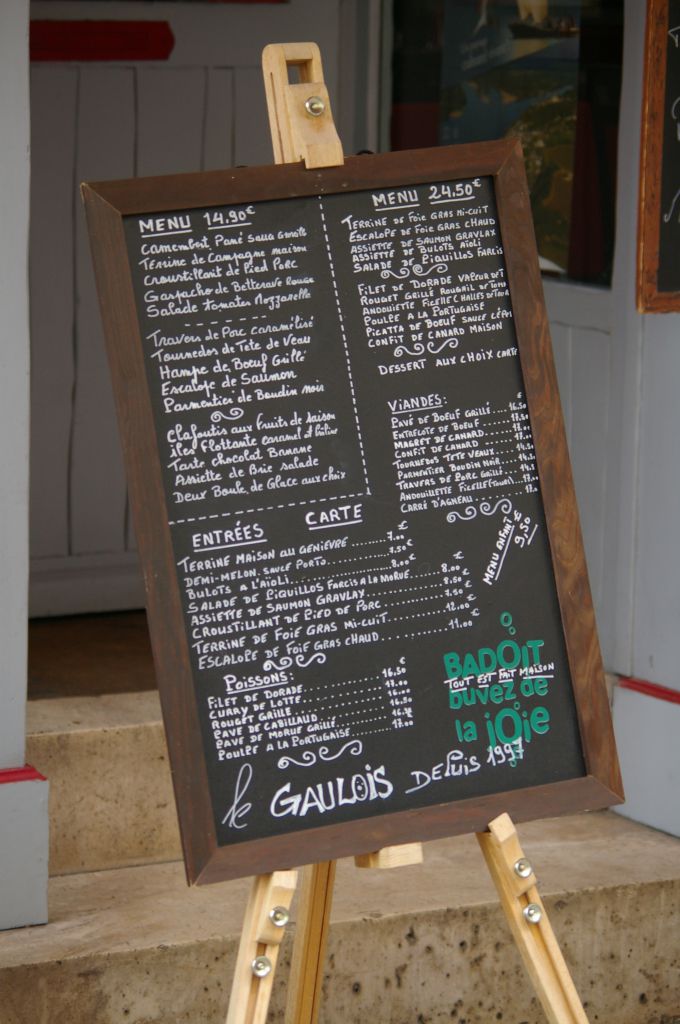 MENU 14.90€
Camembert Pané Sauce
Terrine de Campagne maison
Croustillant de Pied Porc
Gaspacho de Betterave Rouge
Salade tomates Mozzarelle
Travers de Porc caramélisé
Tournedos de Tete de Veau
Hampe de Boeuf Grillé
Escalope de Saumon
Parmentier de Boudin noir
Clafoutis aux fruits de saison
Iles Flottante caramel et
Tarte chocolat Banane
Assiette de Brie salade
Deux Boule de Glace aux choix
MENU 24.50€
TERRINE DE FOIE GRAS MI-CUIT
ESCALOPE DE FOIE GRAS CHAUD
ASSIETTE DE SAUMON GRAVLAX
ASSIETTE DE BULOTS AIOLI
SALADE DE PIQUILLOS FARCIS
FILET DE DORADE VAPEUR
ROUGET GRILLÉ ROUGAIL DE
ANDOUIETTE FICELLE
POULPE A LA PORTUGAISE
PICATTA DE BOEUF SAUCE CÈPE
CONFIT DE CANARD MAISON
DESSERT AUX CHOIX CARTE
VIANDES: €
PAVÉ DE BOEUF GRILLÉ....16.50
ENTRECOTE DE BOEUF
MAGRET DE CANARD
CONFIT DE CANARD
TOURNEDOS TETE VEAUX
PARMENTIER BOUDIN NOIR
TRAVERS DE PORC GRILLÉ
ANDOUILLETTE FICELLE
CARRÉ D'AGNEAU
MENU ENFANT €
9,50
CARTE
ENTRÉES €
TERRINE MAISON AU GENIEVRE ........ 7.00
DEMI-MELON SAUCE PORTO ........ 7.50
BULOTS A L'AIOLI ........ 8.00
SALADE DE PIQUILLOS FARCIS A LA MORUE €
ASSIETTE DE SAUMON GRAVLAX ........ 8.00
CROUSTILLANT DE PIED DE PORC ........
TERRINE DE FOIE GRAS MI-CUIT ........ 12.00
ESCALOPE DE FOIE GRAS CHAUD ........ 11.00
POISSONS: €
FILET DE DORADE ........ 16.50
CURRY DE LOTTE ........ 17.00
ROUGET GRILLE ........
PAVE DE CABILLAUD ........
PAVE DE MORUE GRILLÉ ........
POULPE A LA PORTUGAISE ........ 17.00
BADOIT
TOUT EST FAIT MAISON
buvez de
la joie
le GAULOIS DEPUIS 1997